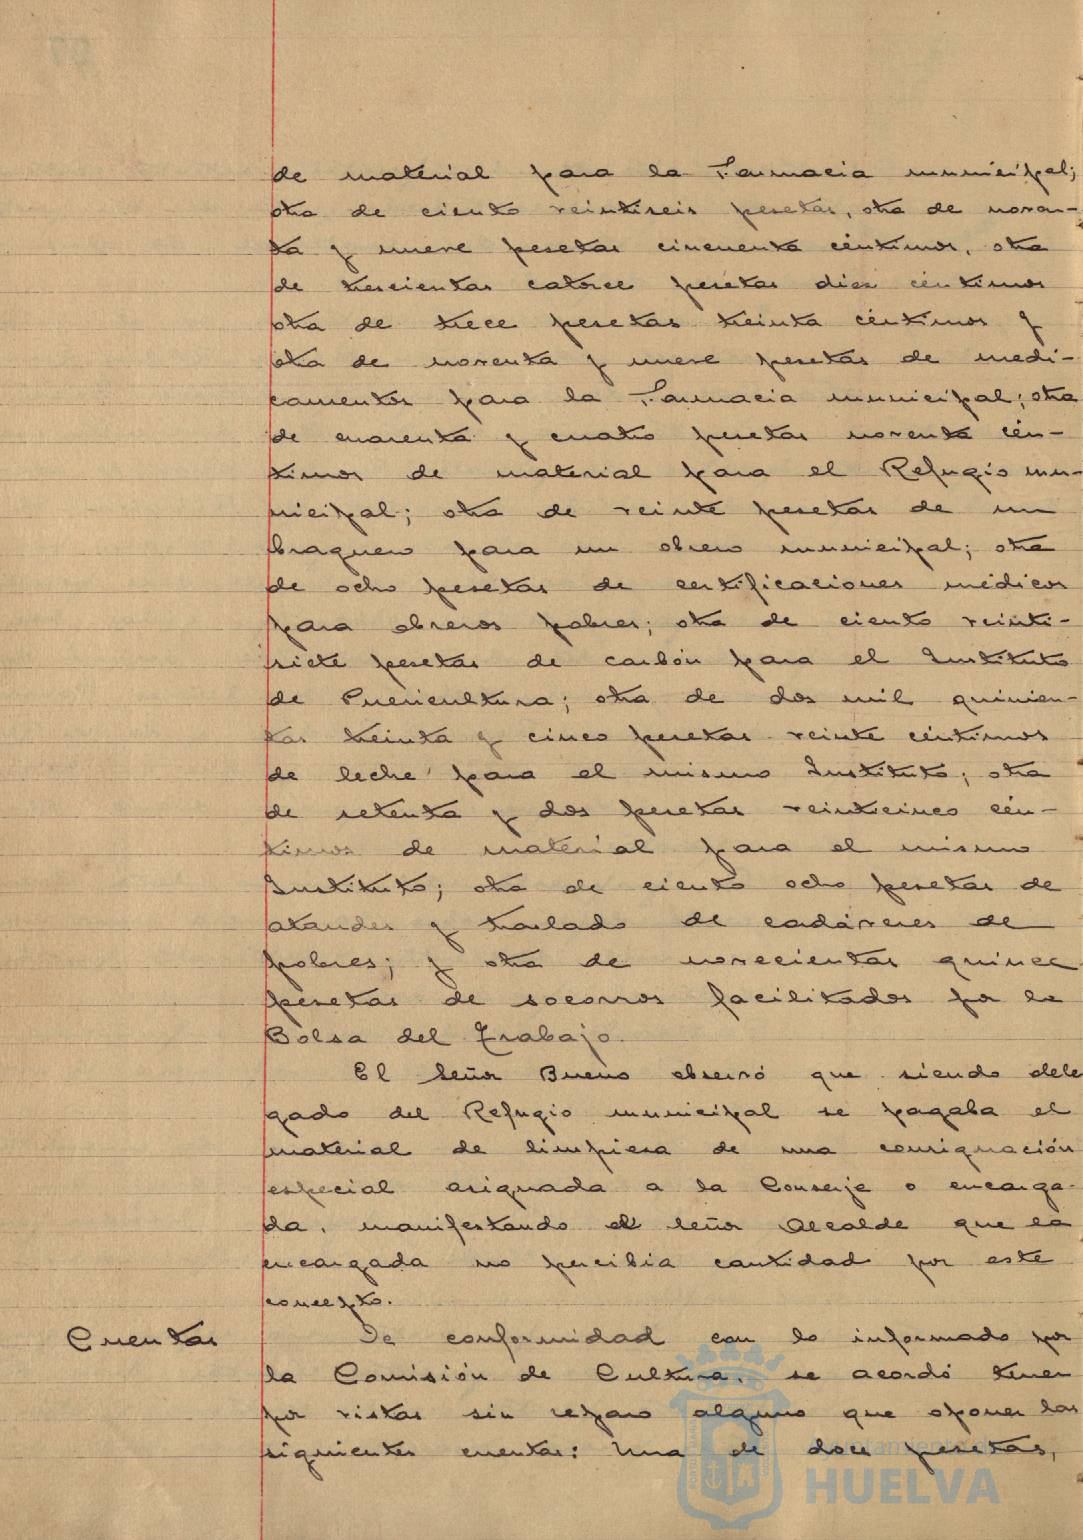 de material para la Farmacia municipal;
otra de ciento veintiseis pesetas, otra de noven-
ta y nueve pesetas cincuenta céntimos, otra
de trescientas catorce pesetas diez céntimos
otra de trece pesetas treinta céntimos y
otra de noventa y nueve pesetas de medi-
camentos para la Farmacia municipal; otra
de cuarenta y cuatro pesetas noventa cén-
timos de material para el Refugio mu-
nicipal; otra de veinte pesetas de un
braguero para un obrero municipal; otra
de ocho pesetas de certificaciones médicos
para obreros pobres; otra de ciento veinti-
siete pesetas de carbón para el Instituto
de Puericultura; otra de dos mil quinien-
tas treinta y cinco pesetas veinte céntimos
de leche para el mismo Instituto; otra
de setenta y dos pesetas veinticinco cén-
timos de material para el mismo
Instituto; otra de ciento ocho pesetas de
ataudes y traslado de cadáveres de
pobres; y otra de novecientas quince
pesetas de socorros facilitados por la
Bolsa del Trabajo.
El Señor Bueno observó que siendo dele
gado del Refugio municipal se pagaba el
material de limpieza de una consignación
especial asignada a la Conserje o encarga-
da, manifestando el señor Alcalde que la
encargada no percibia cantidad por este
concepto.
Cuentas De conformidad con lo informado por
la Comisión de Cultura, se acordó tener
por vistas sin reparo alguno que oponer las
siguientes cuentas: Una de doce pesetas,
Ayuntamiento de
HUELVA